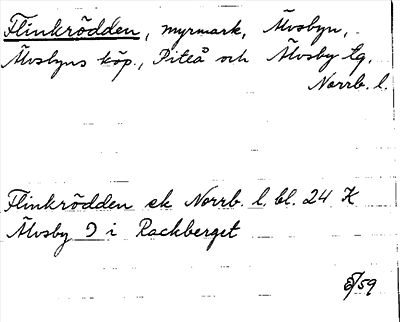 Flinkrödden, myrmark, Älvsbyn,
Älvsbyns köp., Piteå och Älvsby tg,
Norrb. l.
Flinkrödden ek Norrb. l. bl. 24 K
Älvsby I i Rackberget
8/59